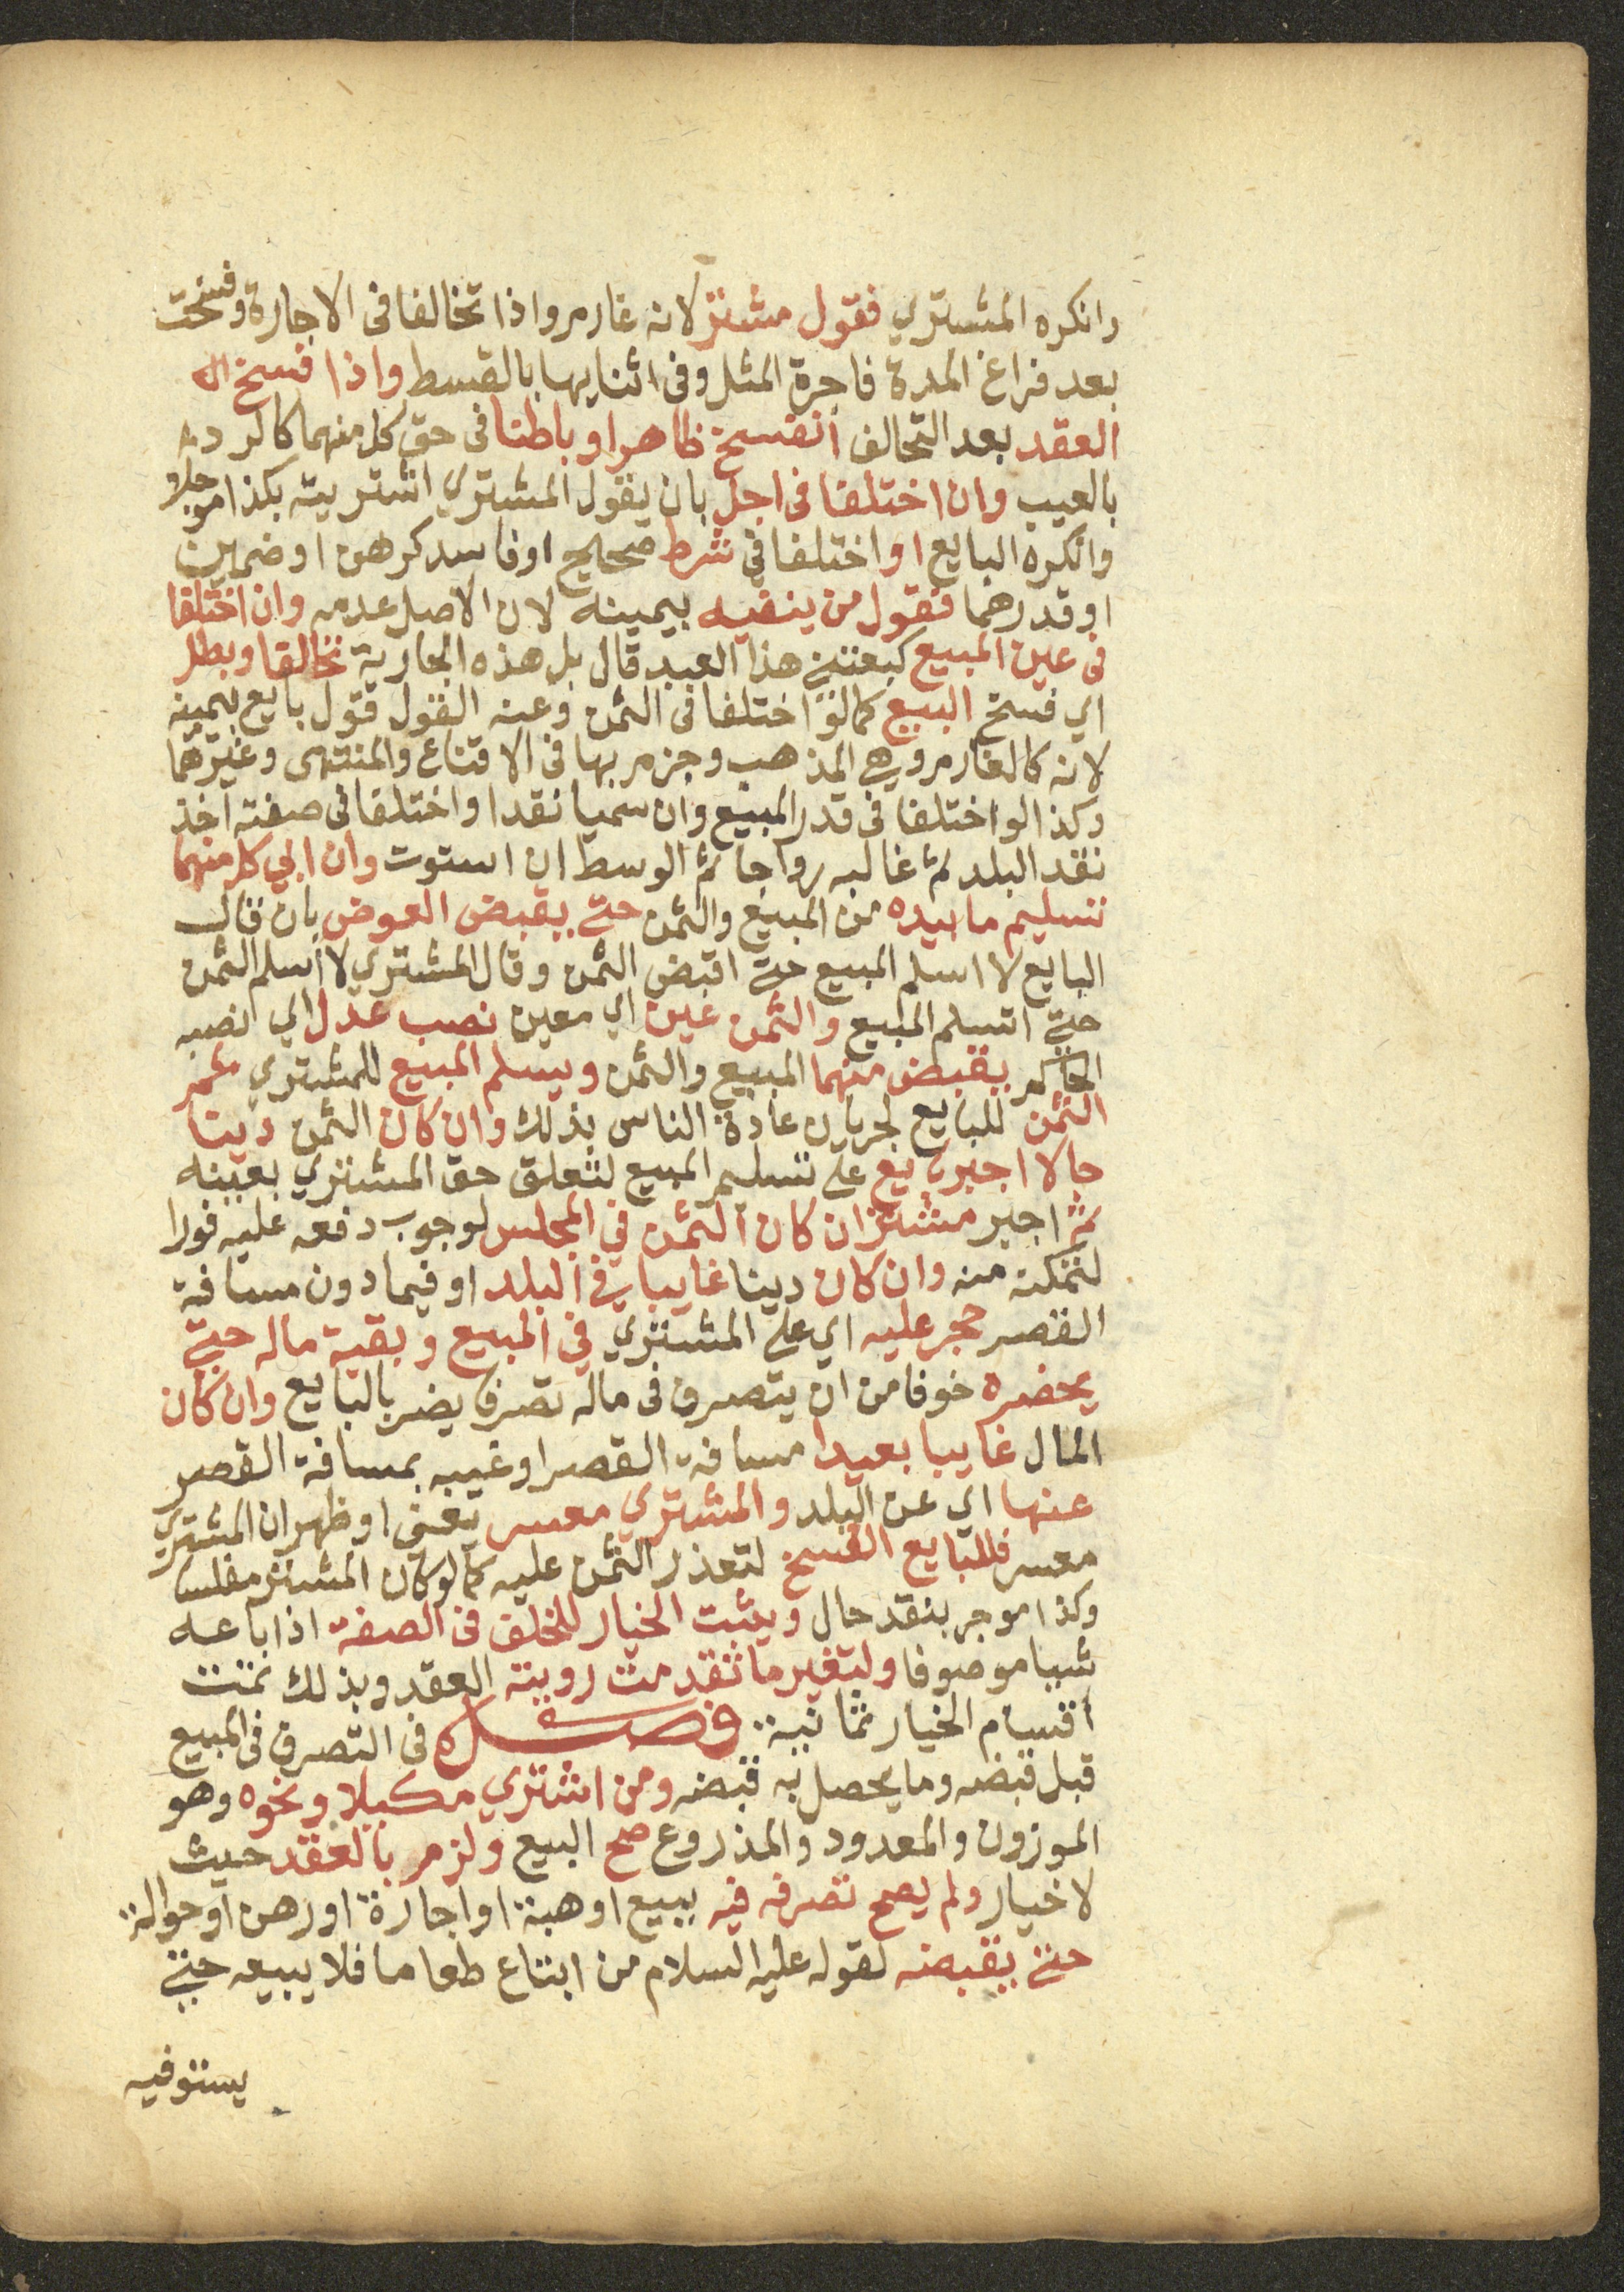 وانكره المشتري فقول مشتر لانه غارم واذا تخالفا فى الاجارة وفسخت
بعد فراغ المدة فاجرة المثل وفى اثنايها بالقسط واذا فسخ
العقد بعد التحالف انفسخ ظاهرا وباطنا فى حق كل منهما كالرد
بالعيب وان اختلفا فى اجل بان يقول المشتري اشتريته بكذا موجلا
وانكره البايع او اختلفا في شرط صحيح او فاسد كرهن او ضمين
او قدرهما فقول من ينفيه بيمينه لان الاصل عدمه وان اختلفا
فى عين المبيع كبعتني هذا العبد قال بل هذه الجارية تخالفا وبطل
اي فسخ البيع كما لو اختلفا فى الثمن وعنه القول قول بايع بيمينه
لانه كالغارم وهي المذهب وجزم بها فى الاقناع والمنتهى وغيرهما
وكذا لو اختلفا فى قدر المبيع وان سميا نقدا واختلفا فى صفته اخذ
نقد البلد ثم غالبه رواجا ثم الوسط ان استوت وان ابي كل منهما
تسليم ما بيده من المبيع والثمن حتي يقبض العوض بان قال
البايع لا اسلم المبيع حتي اقبض الثمن وقال المشتري لا اسلم الثمن
حتي اتسلم المبيع والثمن عين اي معين نصب عدل اي نصبه
الحاكم يقبض منهما المبيع والثمن ويسلم المبيع للمشتري ثم
الثمن للبايع لجريان عادة الناس بذلك وان كان الثمن دينا
حالا اجبر بايع علي تسليم المبيع لتعلق حق المشتري بعينه
ثم اجبر مشتر ان كان الثمن في المجلس لوجوب دفعه عليه فورا
لتمكنه منه وان كان دينا غايبا في البلد او فيما دون مسافة
القصر حجر عليه اي علي المشتري في المبيع وبقية ماله حتي
يحضره خوفا من ان يتصرف فى ماله تصرفا يضر بالبايع وان كان
المال غايبا بعيدا مسافة القصر او غيبه بمسافة القصر
عنها اي عن البلد والمشتري معسر يعني او ظهر ان المشتري
معسر فللبايع الفسخ لتعذر الثمن عليه كما لو كان المشتري مفلسا
وكذا موجر بنقد حال ويثبت الخيار للخلف فى الصفة اذا باعه
شيا موصوفا ولتغير ما تقدمت رويته العقد وبذلك تمت
اقسام الخيار ثمانية فصل فى التصرف فى المبيع
قبل قبضه وما يحصل به قبضه ومن اشتري مكيلا ونحوه وهو
الموزون والمعدود والمذروع صح البيع ولزم بالعقد حيث
لا خيار ولم يصح تصرفه فيه ببيع او هبة او اجارة او رهن او حوالة
حتي يقبضه لقوله عليه السلام من ابتاع طعاما فلا يبيعه حتي
يستوفيه